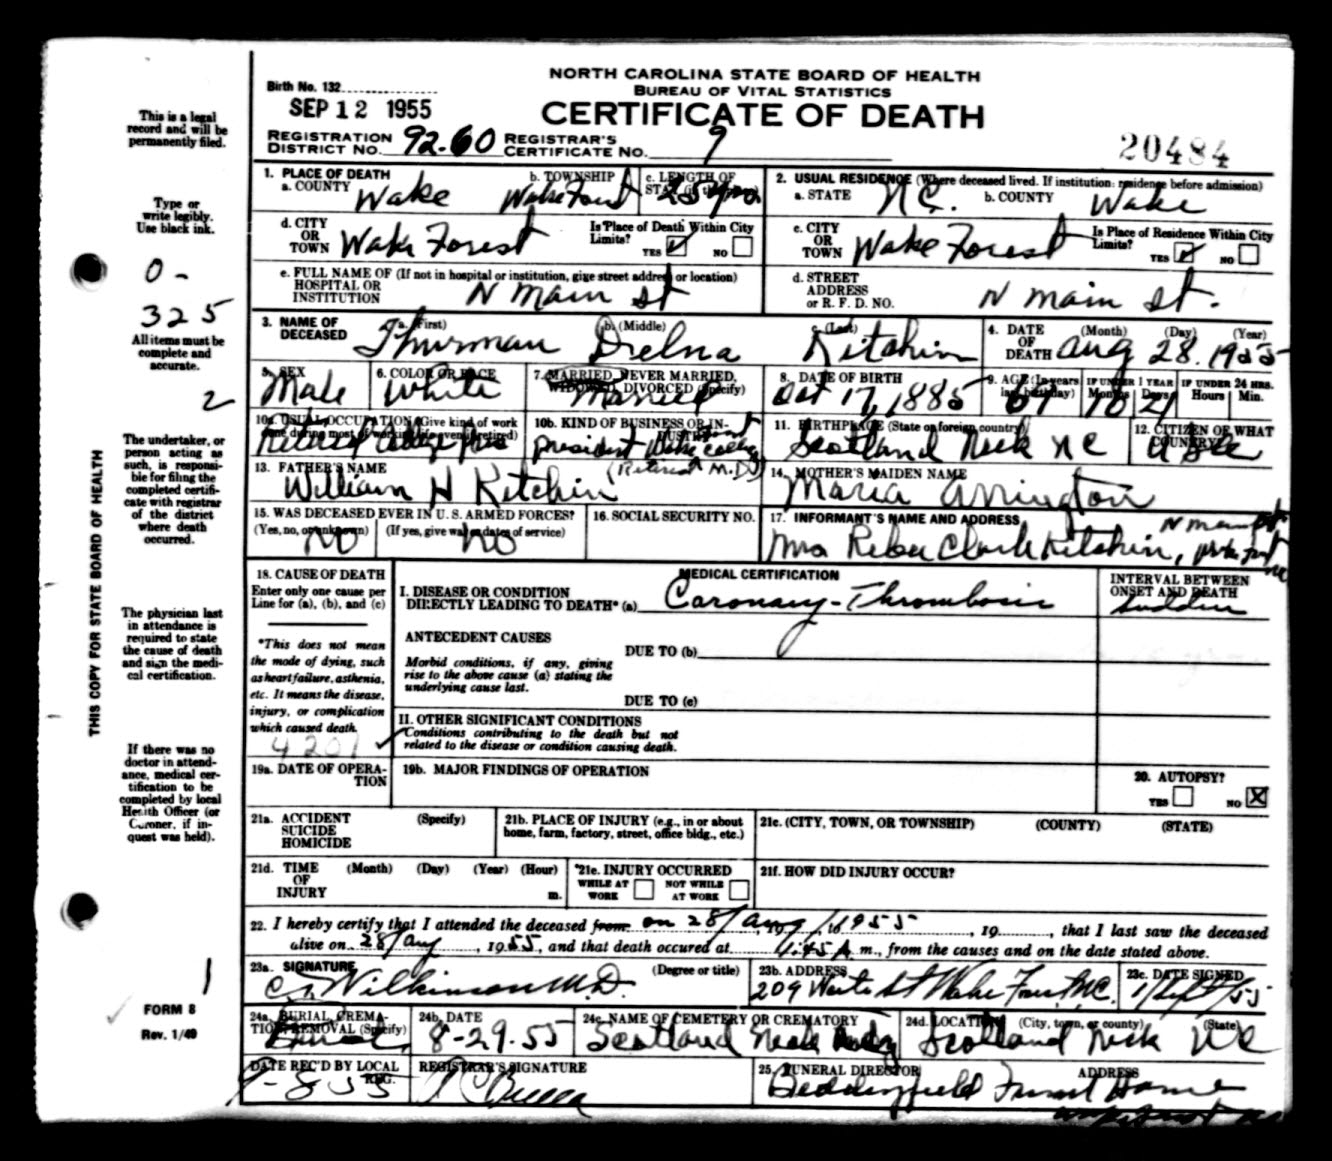 NORTH CAROLINA STATE BOARD OF HEALTH
BUREAU OF VITAL STATISTICS
CERTIFICATE OF DEATH
Birth No. 132
SEP 12 1955
REGISTRATION DISTRICT NO. 92-60 REGISTRAR'S CERTIFICATE NO. 9
20484
1. PLACE OF DEATH
a. COUNTY Wake
b. TOWNSHIP Wake Forest
c. LENGTH OF STAY (in this place) 25 yrs
2. USUAL RESIDENCE (Where deceased lived. If institution: residence before admission)
a. STATE N.C. b. COUNTY Wake
d. CITY OR TOWN Wake Forest
Is Place of Death Within City Limits? YES NO
c. CITY OR TOWN Wake Forest
Is Place of Residence Within City Limits? YES NO
e. FULL NAME OF (If not in hospital or institution, give street address or location)
HOSPITAL OR INSTITUTION N Main St
d. STREET ADDRESS or R. F. D. NO. N Main St.
3. NAME OF DECEASED
a. (First) Thurman
b. (Middle) Delna
c. (Last) Kitchin
4. DATE OF DEATH (Month) (Day) (Year) Aug 28. 1955
5. SEX Male
6. COLOR OR RACE White
7. MARRIED, NEVER MARRIED, WIDOWED, DIVORCED (Specify) Married
8. DATE OF BIRTH Oct 17, 1885
9. AGE (In years last birthday) 69 IF UNDER 1 YEAR Months 10 Days IF UNDER 24 HRS. Hours Min.
10a. USUAL OCCUPATION (Give kind of work done during most of working life, even if retired) Retired College Pres
10b. KIND OF BUSINESS OR INDUSTRY president Wake Forest College
(Retired M.D.)
11. BIRTHPLACE (State or foreign country) Scotland Neck NC
12. CITIZEN OF WHAT COUNTRY? USA
13. FATHER'S NAME
William H Kitchin
14. MOTHER'S MAIDEN NAME
Maria Arrington
15. WAS DECEASED EVER IN U. S. ARMED FORCES?
(Yes, no, or unknown) No (If yes, give war or dates of service) No
16. SOCIAL SECURITY NO.
17. INFORMANT'S NAME AND ADDRESS N Main St
Mrs Reba Clark Kitchin, Wake Forest NC
18. CAUSE OF DEATH
Enter only one cause per Line for (a), (b), and (c)
*This does not mean the mode of dying, such as heart failure, asthenia, etc. It means the disease, injury, or complication which caused death.
4201
MEDICAL CERTIFICATION
I. DISEASE OR CONDITION DIRECTLY LEADING TO DEATH* (a) Coronary-Thrombosis
INTERVAL BETWEEN ONSET AND DEATH
Sudden
ANTECEDENT CAUSES
Morbid conditions, if any, giving rise to the above cause (a) stating the underlying cause last.
DUE TO (b)
DUE TO (c)
II. OTHER SIGNIFICANT CONDITIONS
Conditions contributing to the death but not related to the disease or condition causing death.
19a. DATE OF OPERATION
19b. MAJOR FINDINGS OF OPERATION
20. AUTOPSY?
YES NO X
21a. ACCIDENT SUICIDE HOMICIDE (Specify)
21b. PLACE OF INJURY (e.g., in or about home, farm, factory, street, office bldg., etc.)
21c. (CITY, TOWN, OR TOWNSHIP) (COUNTY) (STATE)
21d. TIME OF INJURY (Month) (Day) (Year) (Hour) m.
21e. INJURY OCCURRED
WHILE AT WORK NOT WHILE AT WORK
21f. HOW DID INJURY OCCUR?
22. I hereby certify that I attended the deceased from on 28/Aug/1955, 19, that I last saw the deceased
alive on 28/Aug, 1955, and that death occured at 1:45 A m., from the causes and on the date stated above.
23a. SIGNATURE (Degree or title)
C.T. Wilkinson M.D.
23b. ADDRESS
209 Waite St Wake Forest, N.C.
23c. DATE SIGNED
1/Sept/55
24a. BURIAL, CREMATION, REMOVAL (Specify) Burial
24b. DATE
8-29-55
24c. NAME OF CEMETERY OR CREMATORY
Scotland Neck
24d. LOCATION (City, town, or county) (State)
Scotland Neck NC
DATE REC'D BY LOCAL REG.
9-8-55
REGISTRAR'S SIGNATURE
25. FUNERAL DIRECTOR ADDRESS
Beddingfield Funeral Home
Wake Forest NC
This is a legal record and will be permanently filed.
Type or write legibly. Use black ink.
0-
325
All items must be complete and accurate.
2
The undertaker, or person acting as such, is responsible for filing the completed certificate with registrar of the district where death occurred.
The physician last in attendance is required to state the cause of death and sign the medical certification.
If there was no doctor in attendance, medical certification to be completed by local Health Officer (or Coroner, if inquest was held).
1
FORM 8
Rev. 1/49
THIS COPY FOR STATE BOARD OF HEALTH